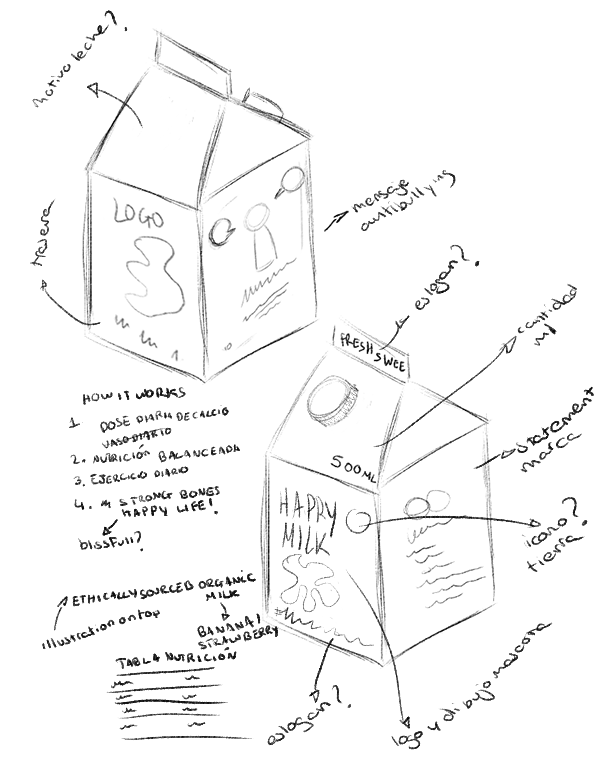 motivo leche?
LOGO
trasera
mensaje
antibullying
eslogan?
cantidad
ml
FRESH SWEE
500ML
HAPPY
MILK
statement
marca
icono?
tierra.
HOW IT WORKS
1 DOSE DIARIA DE CALCIO
VASO DIARIO
2. NUTRICIÓN BALANCEADA
3. EJERCICIO DIARIO
4. STRONG BONES
HAPPY LIFE!
blissfull?
ETHICALLY SOURCED ORGANIC
MILK
illustration on top
BANANA/
STRAWBERRY
TABLA NUTRICIÓN
eslogan?
logo y dibujo mascota